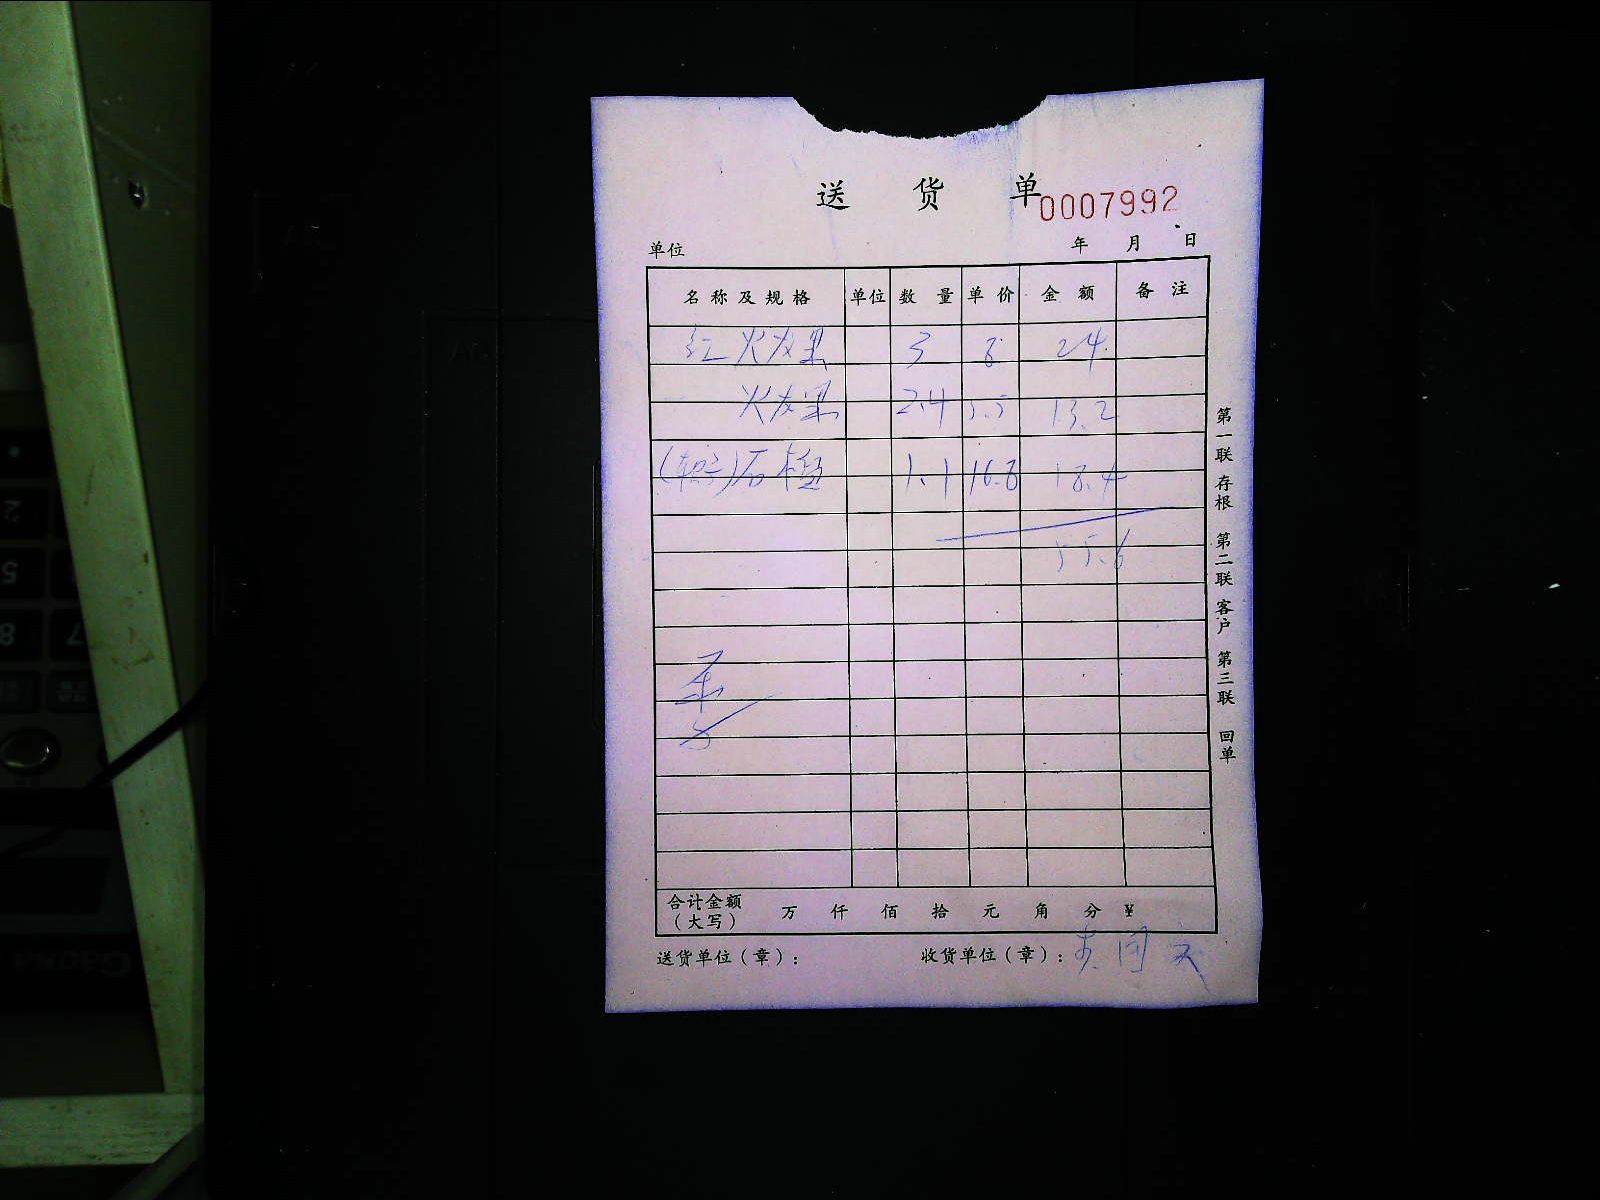 送 货 单 0007992
单位 年 月 日
名称及规格 单位 数量 单价 金额 备注
红 火龙果 3 8 24
火龙果 2.4 5.5 13.2
(软子)石榴 1.1 16.8 18.4
55.6
合计金额(大写) 万 仟 佰 拾 元 角 分 ¥
送货单位(章): 收货单位(章):
第一联 存根 第二联 客户 第三联 回单